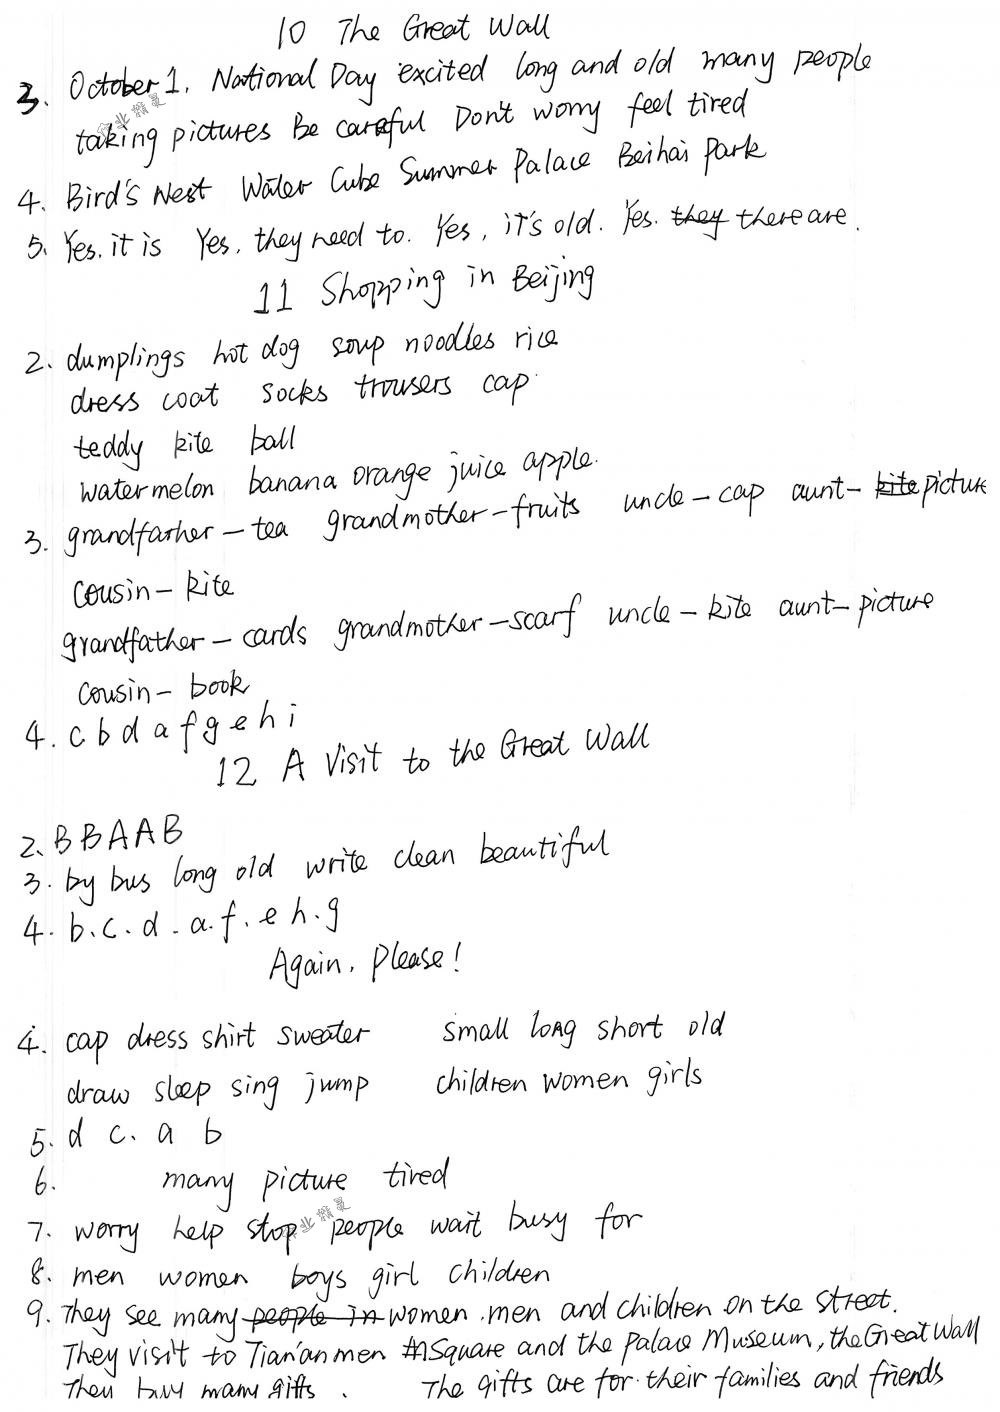 10 The Great Wall
3. October 1. National Day excited long and old many people
taking pictures Be careful Don't worry feel tired
4. Bird's Nest Water Cube Summer Palace Beihai Park
5. Yes. it is Yes. they need to. Yes, it's old. Yes. they there are.
11 Shopping in Beijing
2. dumplings hot dog soup noodles rice
dress coat socks trousers cap
teddy kite ball
watermelon banana orange juice apple.
3. grandfather - tea grandmother - fruits uncle - cap aunt - kite picture
cousin - kite
grandfather - cards grandmother - scarf uncle - kite aunt - picture
cousin - book
4. c b d a f g e h i
12 A Visit to the Great Wall
2. B B A A B
3. by bus long old write clean beautiful
4. b. c. d. a. f. e h. g
Again, Please!
4. cap dress shirt sweater small long short old
draw sleep sing jump children women girls
5. d c. a b
6. many picture tired
7. worry help stop people wait busy for
8. men women boys girl children
9. They see many people in women. men and children on the street.
They visit to Tian'anmen Square and the Palace Museum, the Great Wall
They buy many gifts. The gifts are for their families and friends